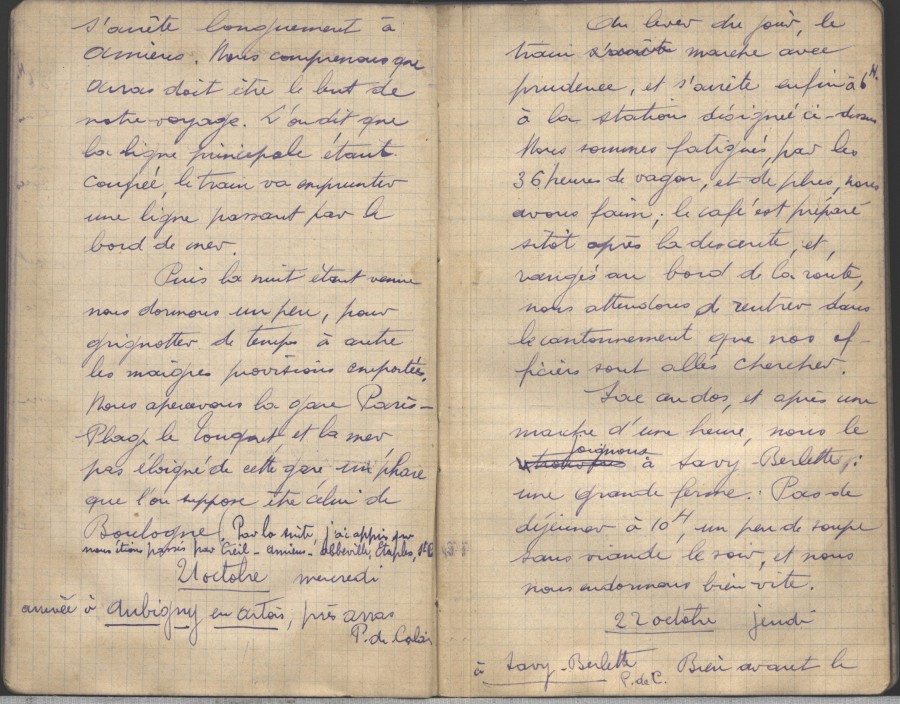 s'arrête longuement à
Amiens. Nous comprenons que
Arras doit être le but de
notre voyage. L'on dit que
la ligne principale étant
coupée, le train va emprunter
une ligne passant par le
bord de mer.
Puis la nuit étant venue
nous dormons un peu, pour
grignotter de temps à autre
les maigres provisions emportées.
Nous apercevons la gare Paris-
Plage le Touquet et la mer
pas éloigné de cette gare un phare
que l'on suppose être celui de
Boulogne (Par la suite, j'ai appris que
nous étions passés par Creil - Amiens - Abbeville, Etaples,
21 octobre mercredi
arrivée à Aubigny en artois, près arras
P. de Calais
Au lever du jour, le
train s'arrête marche avec
prudence, et s'arrête enfin à 6 H.
à la station désignée ci-dessus
Nous sommes fatigués, par les
36 heures de wagon, et de plus, nous
avons faim ; le café est préparé
sitôt après la descente, et
rangés au bord de la route,
nous attendons de rentrer dans
le cantonnement que nos of-
ficiers sont allés chercher.
Sac au dos, et après une
marche d'une heure, nous le
joignons
à Savy-Berlette :
une grande ferme. Pas de
déjeuner à 10 H, un peu de soupe
sans viande le soir, et nous
nous endormons bien vite.
22 octobre jeudi
à Savy-Berlette P. de C. Bien avant le